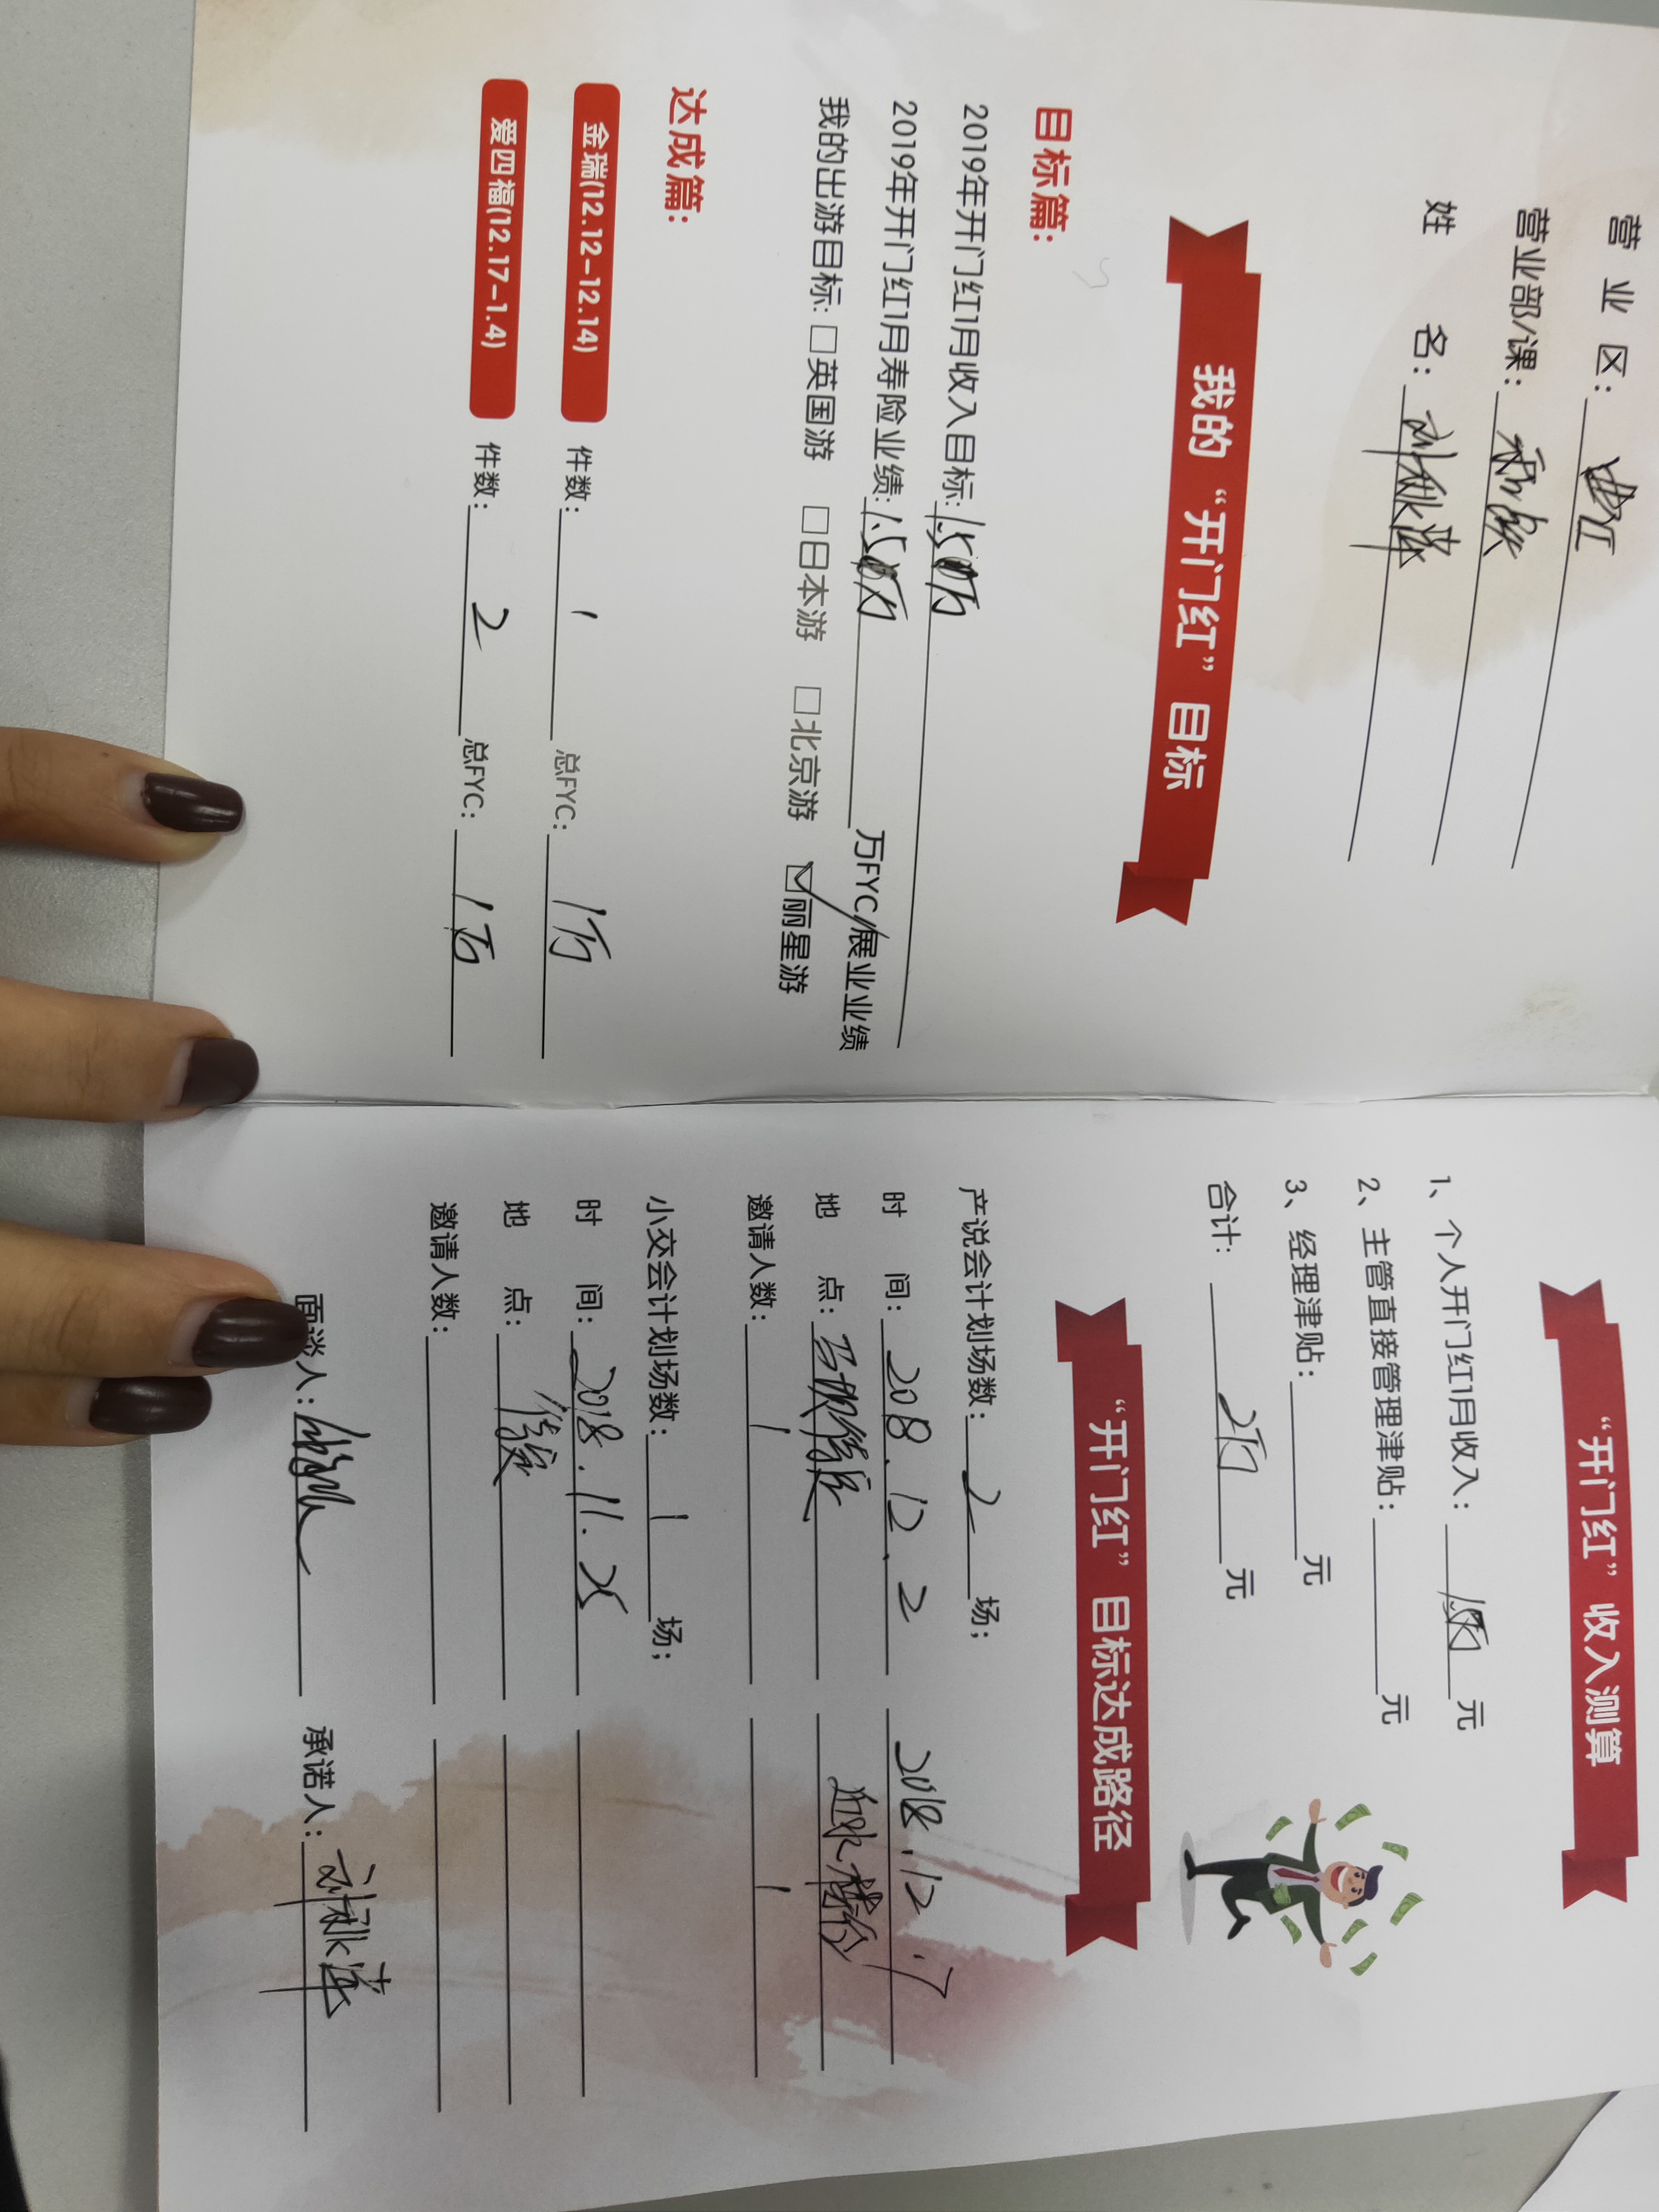 营业区: 曲江
营业部/课:
姓名: 刘秋萍
我的“开门红”目标
目标篇:
2019年开门红1月收入目标: 1.5万
2019年开门红1月寿险业绩: 1.5万 万FYC/展业业绩
我的出游目标: □英国游 □日本游 □北京游 ☑丽星游
达成篇:
金瑞(12.12-12.14) 件数: 1 总FYC: 1万
爱四福(12.17-1.4) 件数: 2 总FYC: 1万
“开门红”收入测算
1、个人开门红1月收入: 元
2、主管直接管理津贴: 元
3、经理津贴: 元
合计: 2万 元
“开门红”目标达成路径
产说会计划场数: 2 场;
时间: 2018.12.2 2018.12.7
地点:
邀请人数: 1 1
小交会计划场数: 1 场;
时间: 2018.11.25
地点:
邀请人数:
面谈人: 承诺人: 刘秋萍